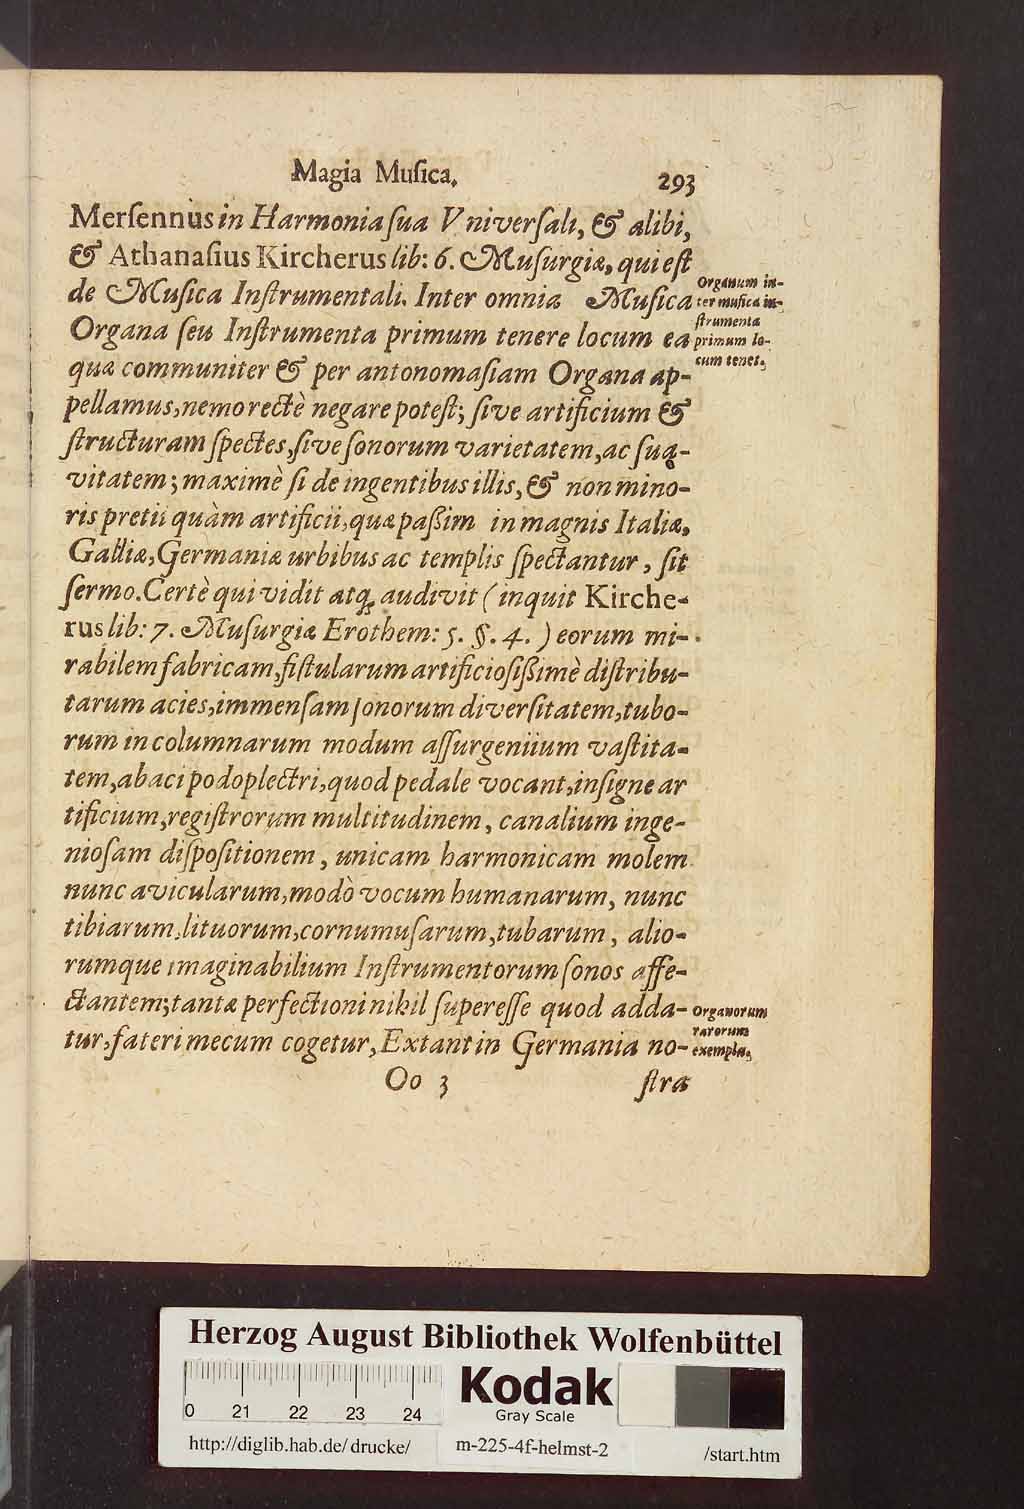 Magia Muſica. 293
Merſennus in Harmonia ſua Vniverſali, & alibi,
& Athanaſius Kircherus lib: 6. Muſurgiæ, qui eſt
de Muſica Inſtrumentali. Inter omnia Muſica
Organa ſeu Inſtrumenta primum tenere locum ea
quæ communiter & per antonomaſiam Organa ap-
pellamus, nemo rectè negare poteſt; ſive artificium &
ſtructuram ſpectes, ſive ſonorum varietatem, ac ſua-
vitatem; maximè ſi de ingentibus illis, & non mino-
ris pretii quàm artificii, quæ paßim in magnis Italiæ,
Galliæ, Germaniæ urbibus ac templis ſpectantur, ſit
ſermo. Certè qui vidit atq; audivit (inquit Kirche-
rus lib: 7. Muſurgiæ Erothem: 5. §. 4.) eorum mi-
rabilem fabricam, fiſtularum artificioſißimè diſtribu-
tarum acies, immenſam ſonorum diverſitatem, tubo-
rum in columnarum modum aſſurgentium vaſtita-
tem, abaci podoplectri, quod pedale vocant, inſigne ar
tificium, regiſtrorum multitudinem, canalium inge-
nioſam diſpoſitionem, unicam harmonicam molem
nunc avicularum, modò vocum humanarum, nunc
tibiarum, lituorum, cornumuſarum, tubarum, alio-
rumque imaginabilium Inſtrumentorum ſonos affe-
ctantem; tantæ perfectioni nihil ſupereſſe quod adda-
tur, fateri mecum cogetur, Extant in Germania no-
Oo 3 ſtra
Organum in-
ter muſica in-
ſtrumenta
primum lo-
cum tenet.
Organorum
rarorum
exempla.
Herzog August Bibliothek Wolfenbüttel
0 21 22 23 24
Kodak
Gray Scale
http://diglib.hab.de/drucke/ m-225-4f-helmst-2 /start.htm